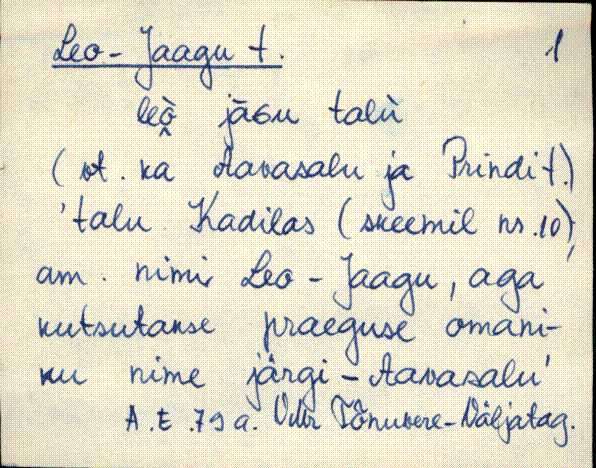 Leo-Jaagu t. 1
leò̬ jāGu talù
(vt. ka Aavasalu ja Prindi t.)
'talu Kadilas (skeemil nr. 10),
am. nimi Leo-Jaagu, aga
kutsutakse praeguse omani-
ku nime järgi - Aavasalu'
A. E. 79 a. VMr Tõnuvere-Näljatag.